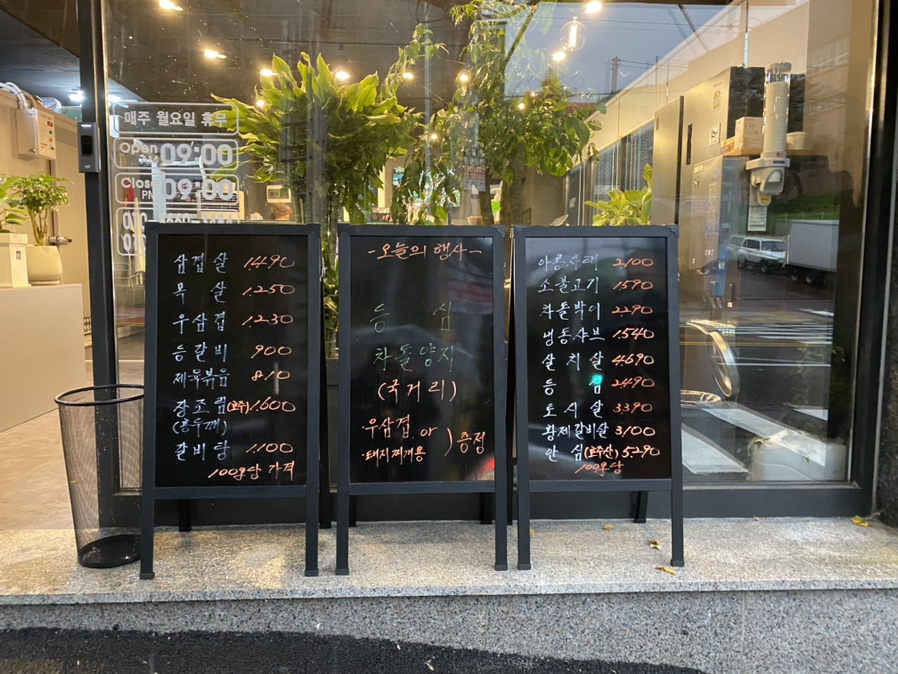 매주 월요일 휴무
Open
09:00
Close
PM
09:00
삼겹살 1.490
목살 1.250
우삼겹 1.230
등갈비 900
제육볶음 810
장조림(호주) 1.600
(홍두깨)
갈비탕 1.100
100g당 가격
-오늘의 행사-
등 심
차돌양지
(국거리)
·우삼겹 or
·돼지찌개용
) 증정
아롱사태 2100
소불고기 1590
차돌박이 2290
냉동샤브 1540
살치살 4.690
등심 2490
토시살 3390
황제갈비살 3100
안심(호주산) 5.290
100g당